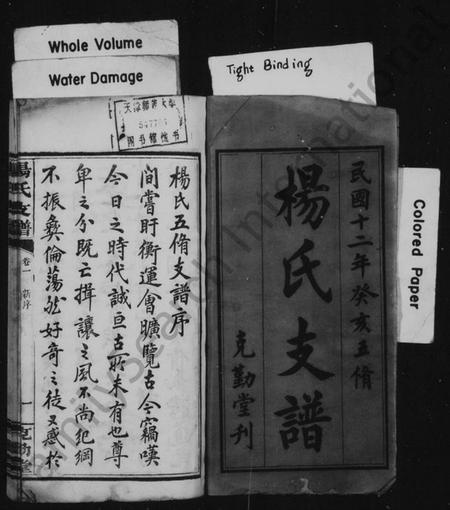 Whole Volume
Water Damage
Tight Binding
Colored Paper
民國十二年癸亥五脩
楊氏支譜
克勤堂刊
楊氏五脩支譜序
間嘗盱衡運會曠覽古今竊嘆
今日之時代誠亘古所未有也尊
卑之分既亡揖讓之風不尚紀綱
不振彝倫蕩然好奇之徒又惑於
楊氏支譜
卷一 新序
一
克勤堂